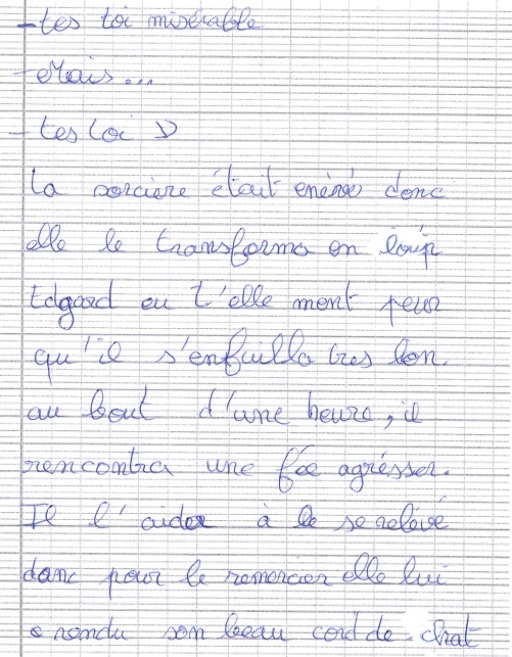 - tes toi misérable
- Mais...
- tes toi
la sorcière était enérvé donc
elle le transforma en loup
Edgard eu t'elle ment peur
qu'il s'enfuilla tres lon.
au bout d'une heure, il
rencontra une fée agrésser.
Il l'aider à le se relévé
danc pour le remercier elle lui
a rendu son beau cord de chat